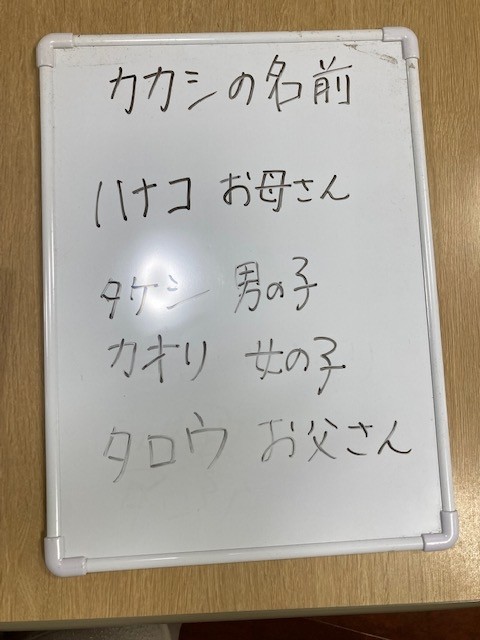 カカシの名前
ハナコ お母さん
タケシ 男の子
カオリ 女の子
タロウ お父さん